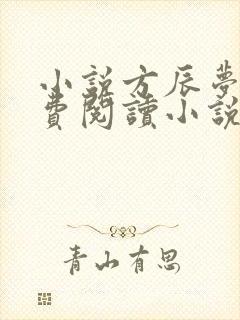 小説方辰夢
費閱讀小説
青山有思